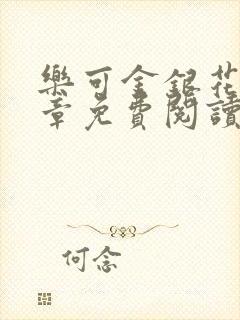 樂可金銀花
章免費閱讀
何念